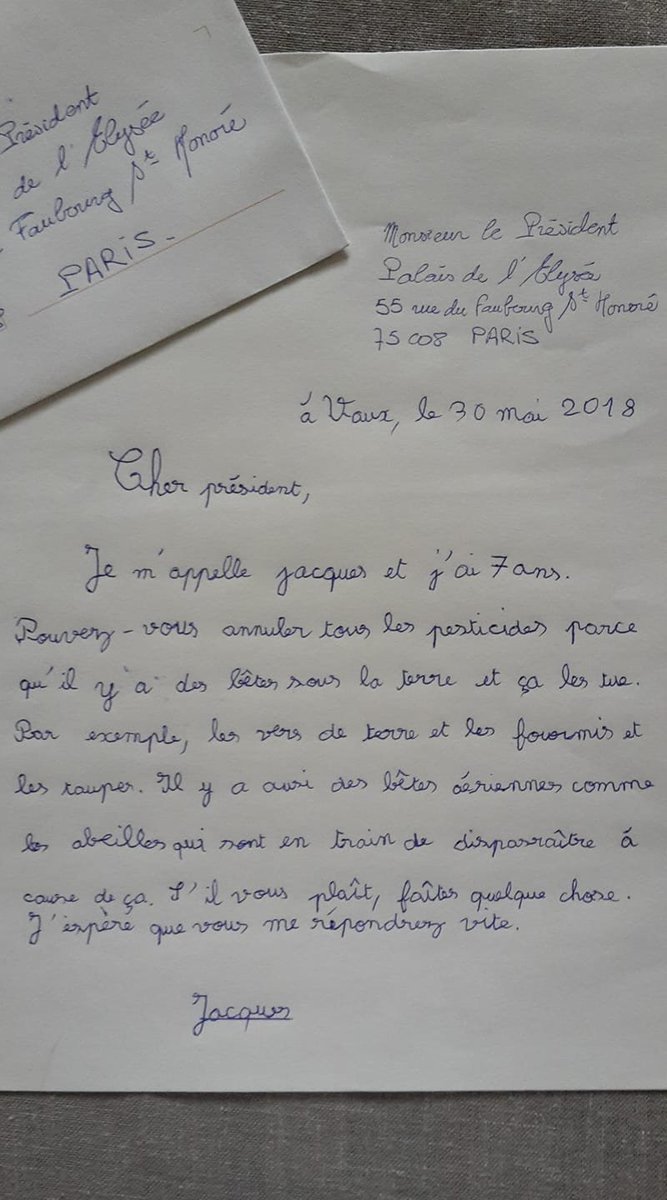 Président
de l'Elysée
Faubourg St Honoré
PARIS.
Monsieur le Président
Palais de l'Elysée
55 rue du Faubourg St Honoré
75008 PARIS
á Vaux, le 30 mai 2018
Cher président,
Je m'appelle jacques et j'ai 7 ans.
Pouvez-vous annuler tous les pesticides parce
qu'il y a des bêtes sous la terre et ça les tue.
Par exemple, les vers de terre et les fourmis et
les taupes. Il y a aussi des bêtes áériennes comme
les abeilles qui sont en train de disparraître á
cause de ça. S'il vous plaît, faîtes quelque chose.
J'espéré que vous me répondrez vite.
Jacques